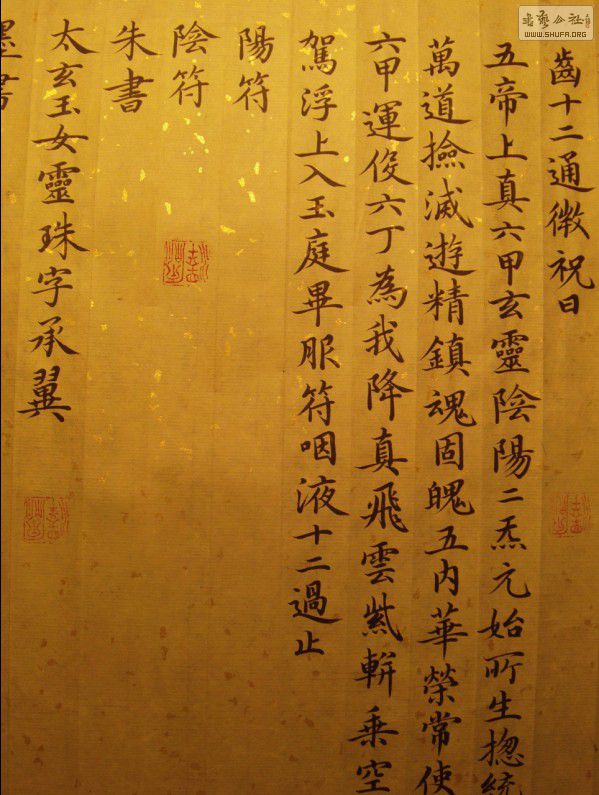 齒十二通微祝曰
五帝上真六甲玄靈陰陽二炁元始所生揔統
萬道撿滅遊精鎮魂固魄五内華榮常使
六甲運俊六丁為我降真飛雲紫軿乘空
駕浮上入玉庭畢服符咽液十二過止
陽符
陰符
朱書
太玄玉女靈珠字承翼
墨書
書藝公社
WWW.SHUFA.ORG